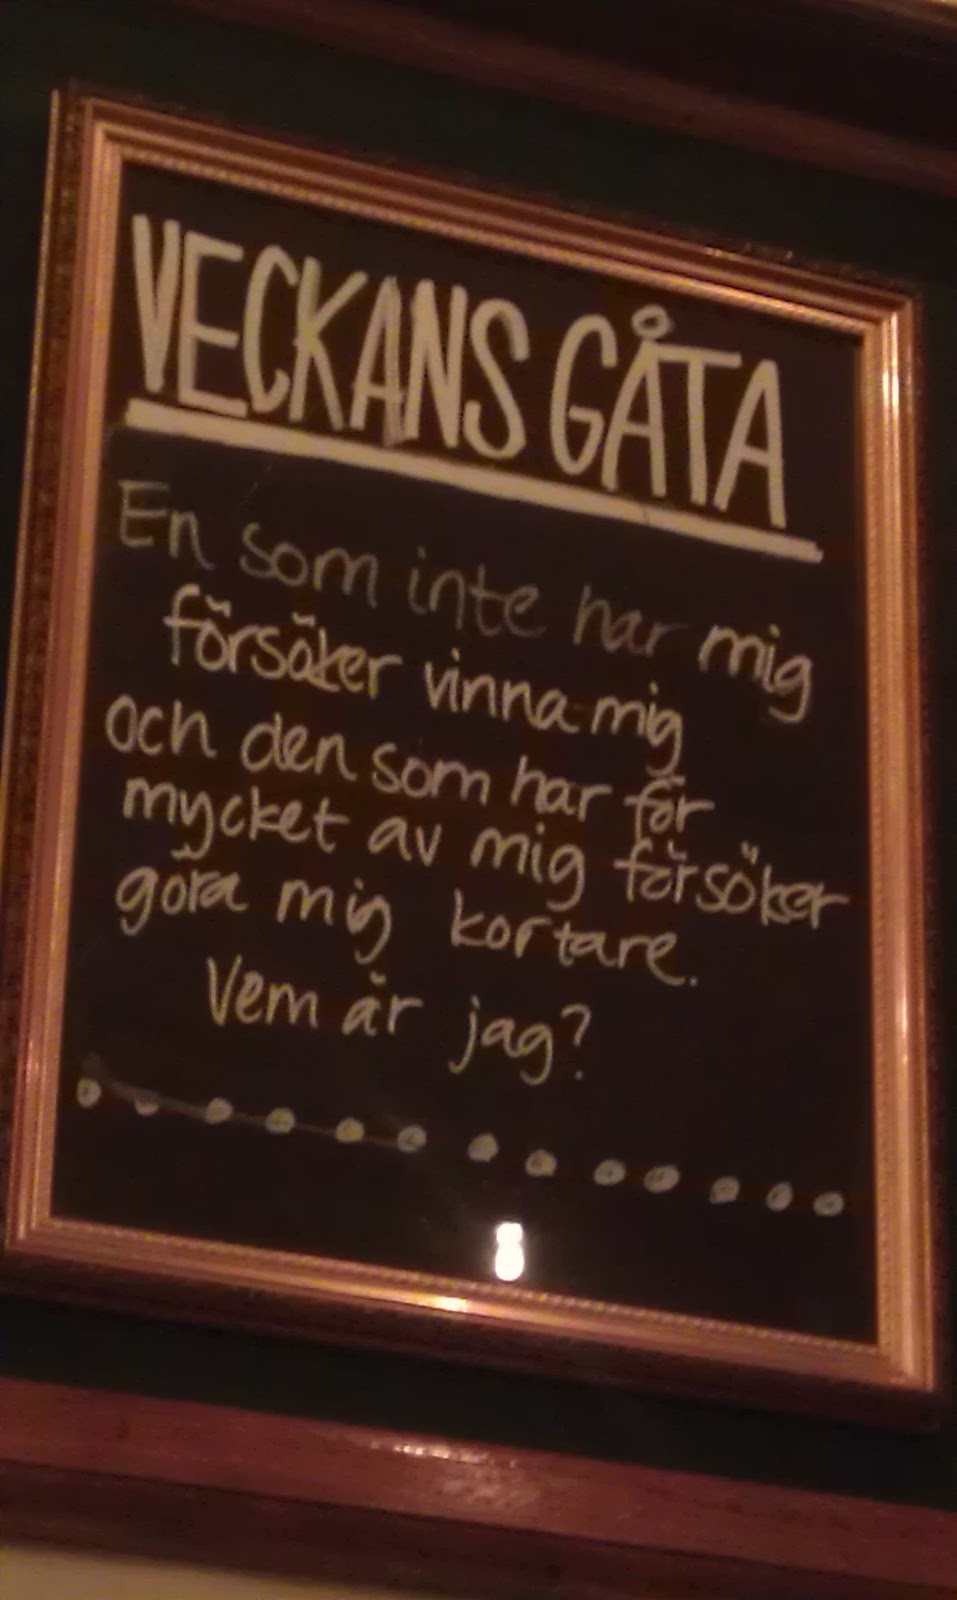 VECKANS GÅTA
En som inte har mig
försöker vinna mig
och den som har för
mycket av mig försöker
göra mig kortare.
Vem är jag?